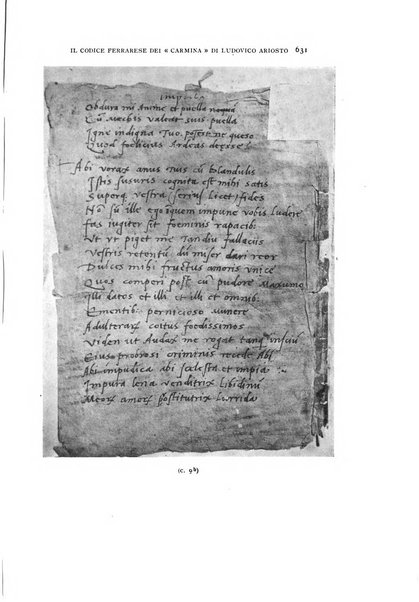 IL CODICE FERRARESE DEI « CARMINA » DI LUDOVICO ARIOSTO 631
Obdura mi Anime et puella
Cū Mœchis valeat suis puella
Igne indigna Tuo, potest ne queso
Quod foelicius Ardeas deesse?
Abi vorax anus Tuis cū bolandulis
Istis susuris cognita est mihi satis
Superq vestra serius licet fides
Nō sū ille ego quem impune vobis ludere
Fas jugiter sit foeminis rapacib
Ut ut piget me Tandiu fallaciis
Vestris retentū dū miser dari reor
Dulces mihi fructus amoris unice
Quos comperi post cū pudore Maxumo
Illi datos et illi et illi et omnib
Ementib pernicioso munere
Adulteræ coitus foedissimos
Viden ut Audax me rogat tanq insciū
criminis recede Abi
Abi impudica abi scelesta et impia
Impura lena venditrix libidinū
Meoꝝ amoꝝ postitutrix lurida
(c. 9b)